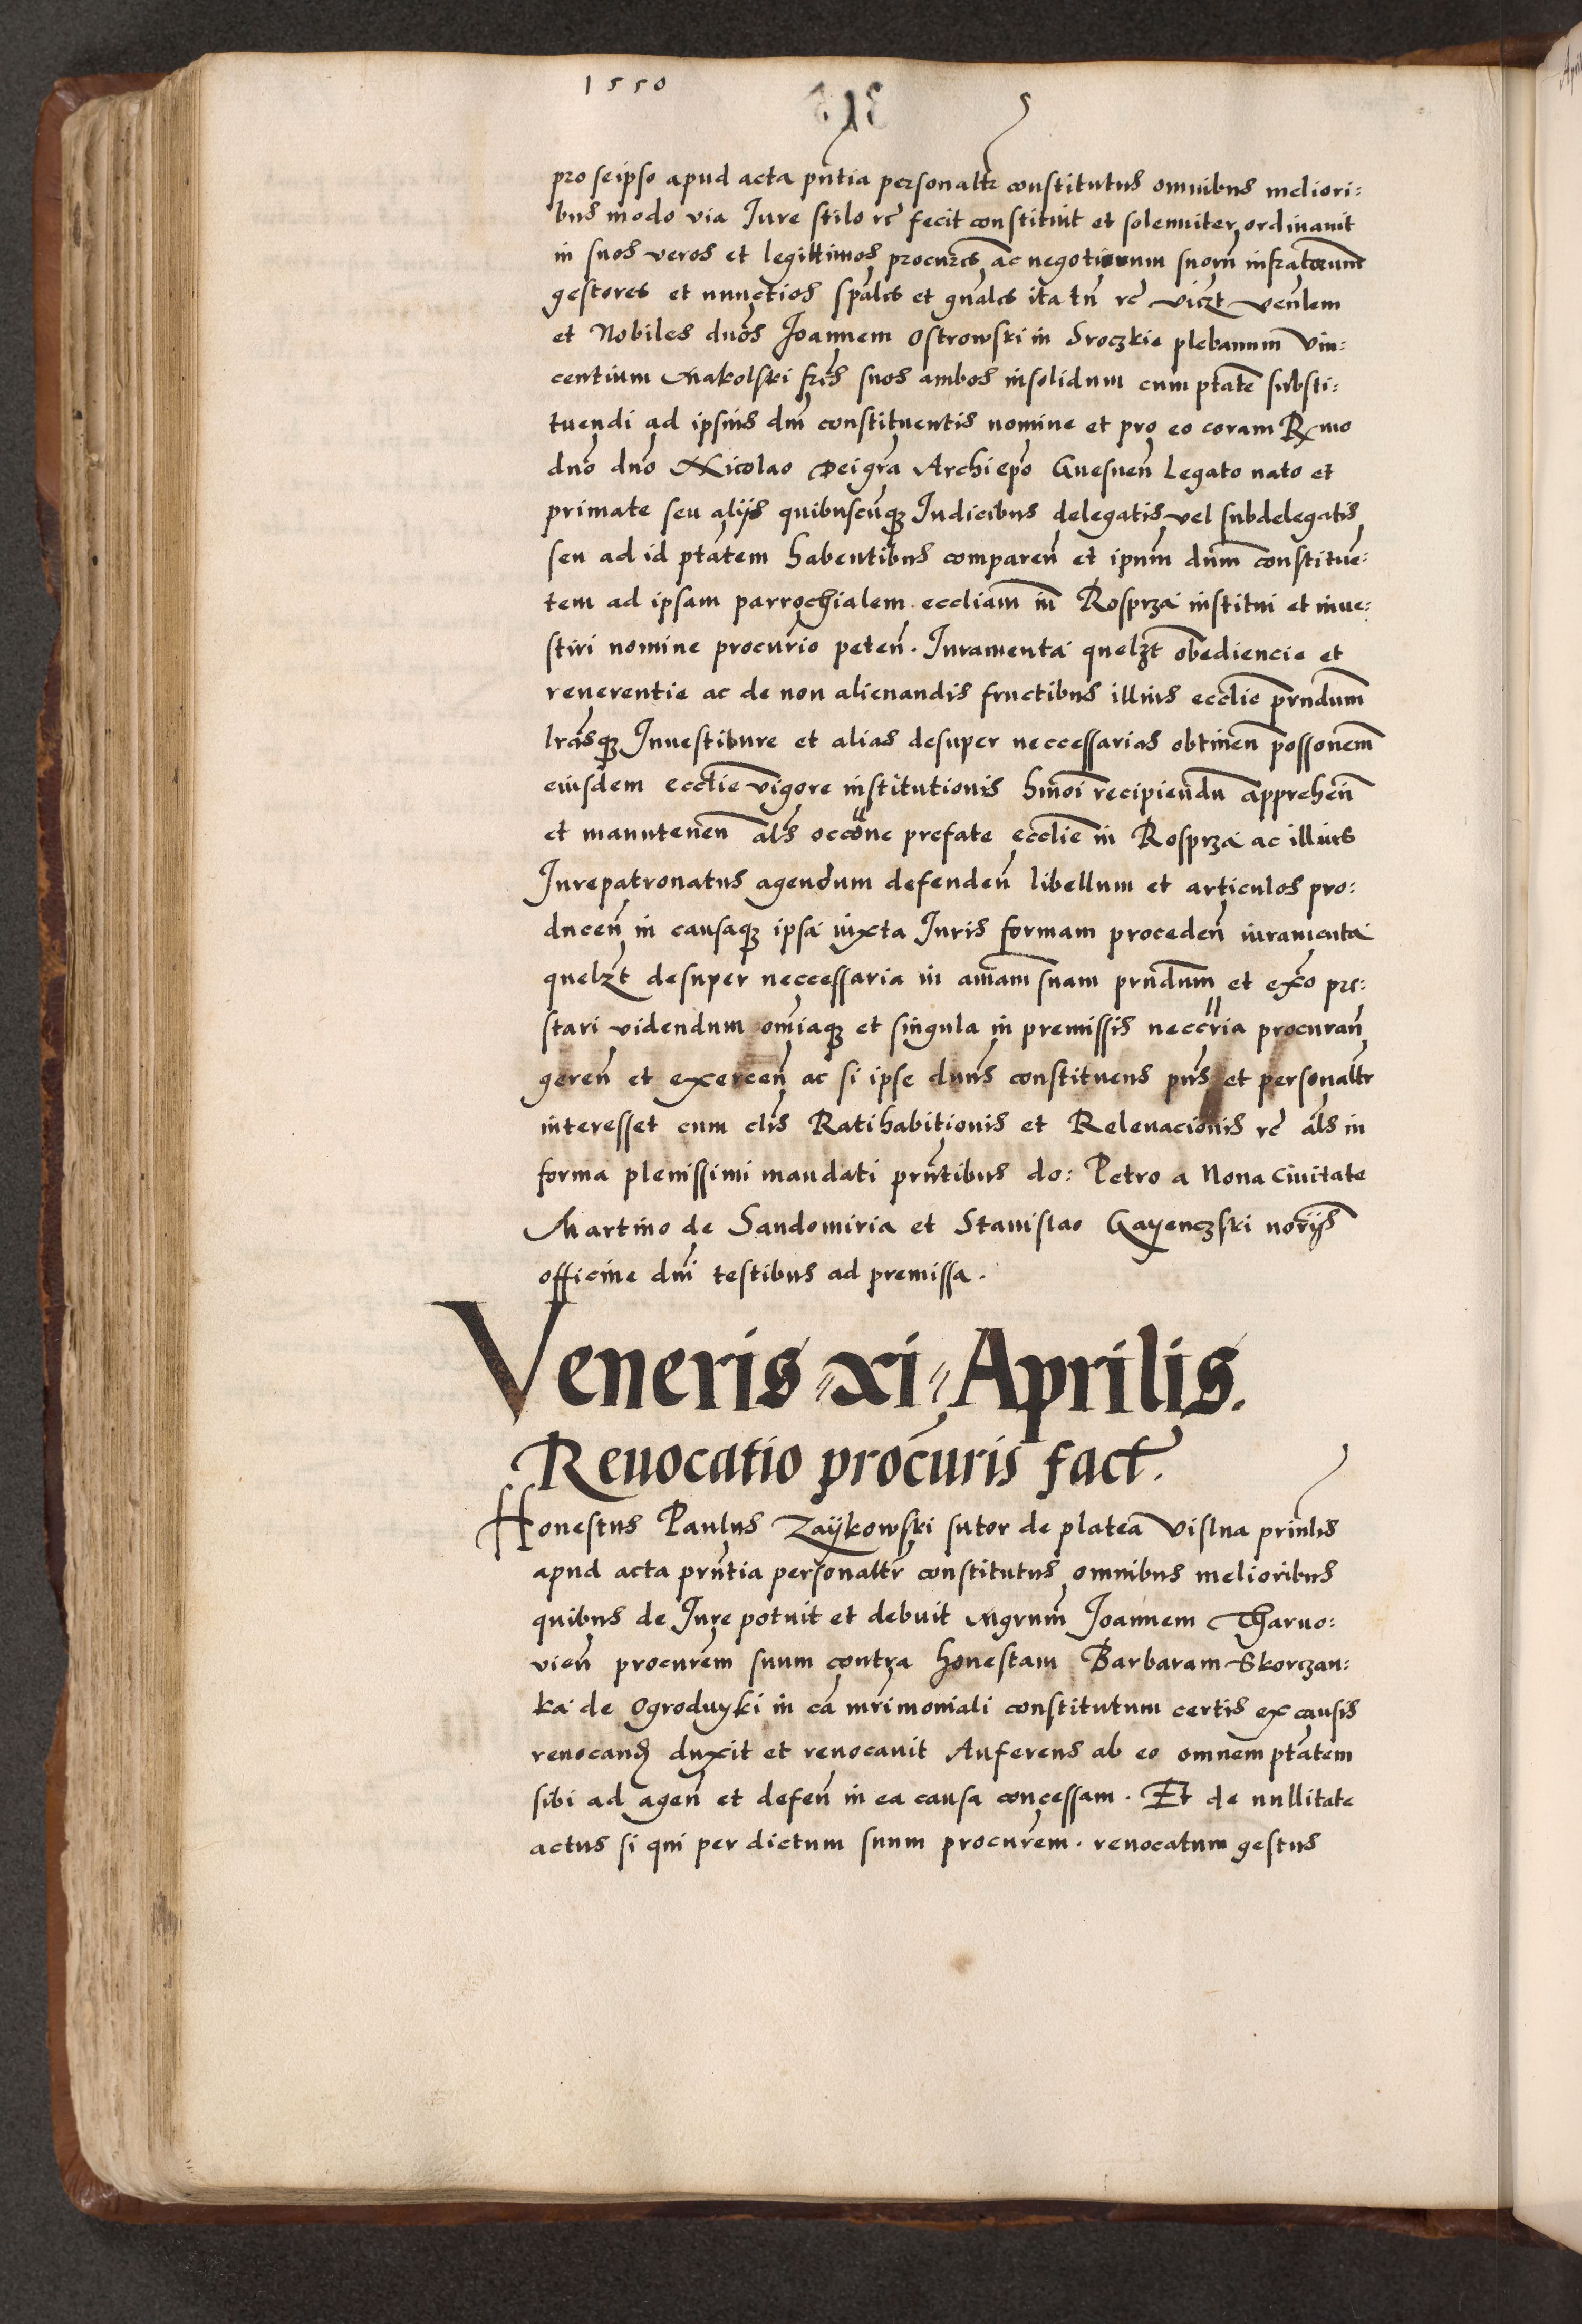 1550
pro seipso apud acta pntia personaltr constitutus omnibus meliori:
bus modo via Iure stilo rc fecit constituit et solenniter ordinauit
in suos veros et legittimos procures ac negotiorum suorum infrascriptorum
gestores et nunctios spales et gnales ita tn rc viczt venlem
et Nobiles dnos Joannem Ostrowski in Sroczkie plebanum Vin:
centium Makolski fres suos ambos insolidum cum ptate substi:
tuendi ad ipsius dni constituentis nomine et pro eo coram Rmo
dno dno Nicolao Dei gra Archiepo Gnesnen Legato nato et
primate seu alijs quibuscunq Iudicibus delegatis vel subdelegatis
seu ad id ptatem habentibus comparen et ipum dnum constitue:
tem ad ipsam parrochialem eccliam in Rosprza institui et inue:
stiri nomine procurio peten. Iuramenta quelzt obediencie et
reuerentie ac de non alienandis fructibus illius ecclie prndum
lrasq Inuestiture et alias desuper neccessarias obtinen possonem
eiusdem ecclie vigore institutionis hmoi recipiendu apprehen
et manutenen als occone prefate ecclie in Rosprza ac illius
Iurepatronatus agendum defenden libellum et articulos pro:
ducen in causaq ipsa iuxta Iuris formam proceden iuramenta
quelzt desuper neccessaria in aiam suam prndum et exo pre:
stari videndum omiaq et singula in premissis neccria procuran
geren et exercen ac si ipse dnus constituens pns et personaltr
interesset cum clis Ratihabitionis et Releuacionis rc als in
forma plenissimi mandati prntibus do: Petro a Noua Ciuitate
Martino de Sandomiria et Stanislao Gayenczski norijs
officine dni testibus ad premissa.
Veneris xi Aprilis.
Reuocatio procuris fact.
Honestus Paulus Zaÿkowski sutor de platea Vislna prinlis
apud acta prntia personaltr constitutus omnibus melioribus
quibus de Iure potuit et debuit Mgrum Joannem Tharno:
vien procurem suum contra honestam Barbaram Skorczan:
ka de Ogrodnyki in ca mrimoniali constitutum certis ex causis
reuocand duxit et reuocauit Auferens ab eo omnem ptatem
sibi ad agen et defen in ea causa concessam. Et de nullitate
actus si qui per dictum suum procurem. reuocatum gestus